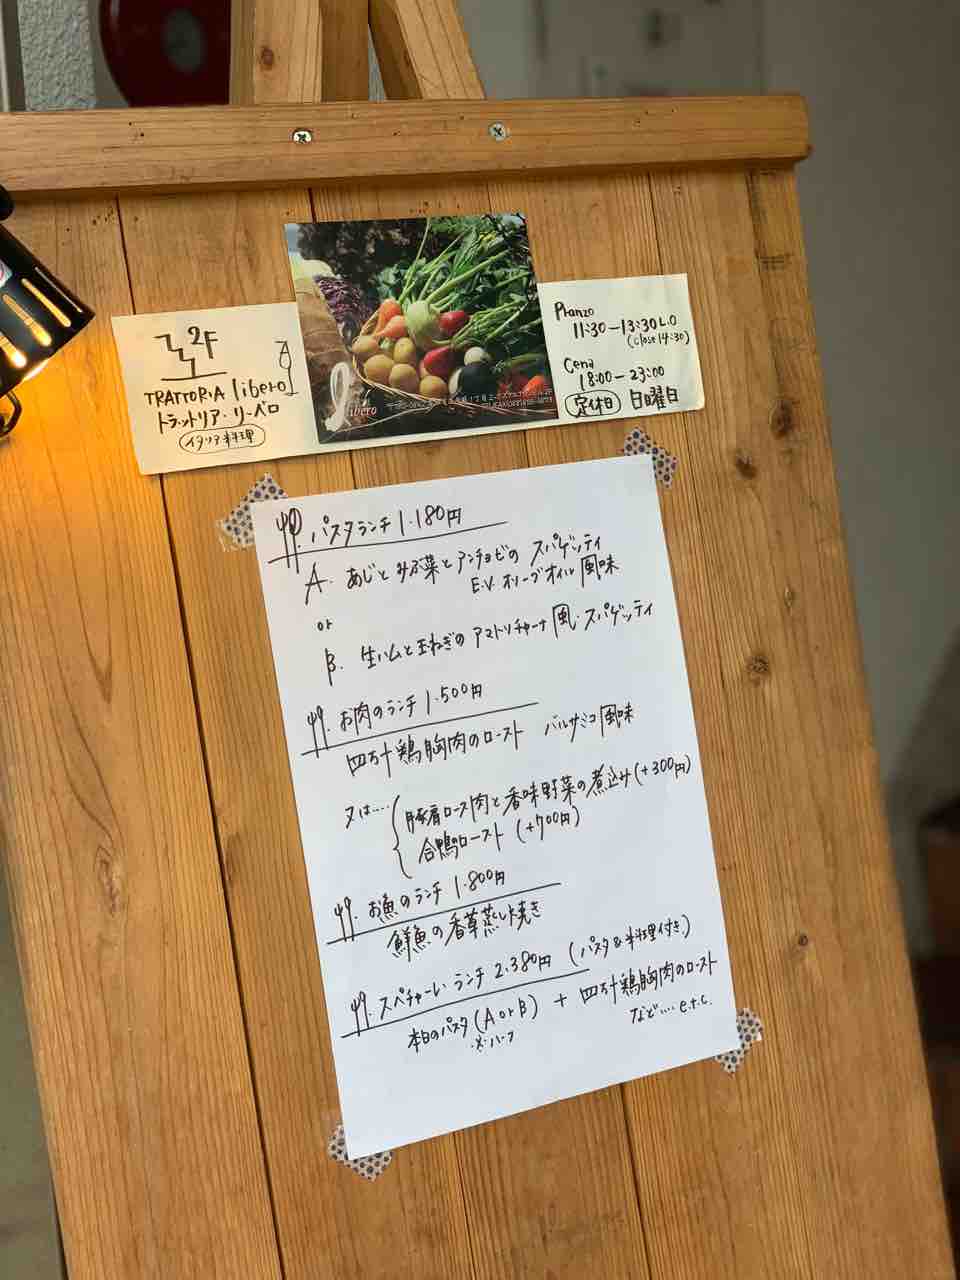 2F
TRATTORIA libero
トラットリア・リーベロ
イタリア料理
libero
Pranzo
11:30-13:30 L.O
(close 14:30)
Cena
18:00-23:00
定休日 日曜日
パスタランチ 1.180円
A. あじとみぶ菜とアンチョビの スパゲッティ
E.V. オリーブオイル風味
or
B. 生ハムと玉ねぎの アマトリチャーナ風・スパゲッティ
お肉のランチ 1.500円
四万十鶏胸肉のロースト バルサミコ風味
又は‥‥ 豚肩ロース肉と香味野菜の煮込み(+300円)
合鴨のロースト (+700円)
お魚のランチ 1.800円
鮮魚の香草蒸し焼き
スペチャーレ ランチ 2.380円 (パスタ&料理付き)
本日のパスタ (A or B) + 四万十鶏胸肉のロースト
※ハーフ
など‥‥ e.t.c.